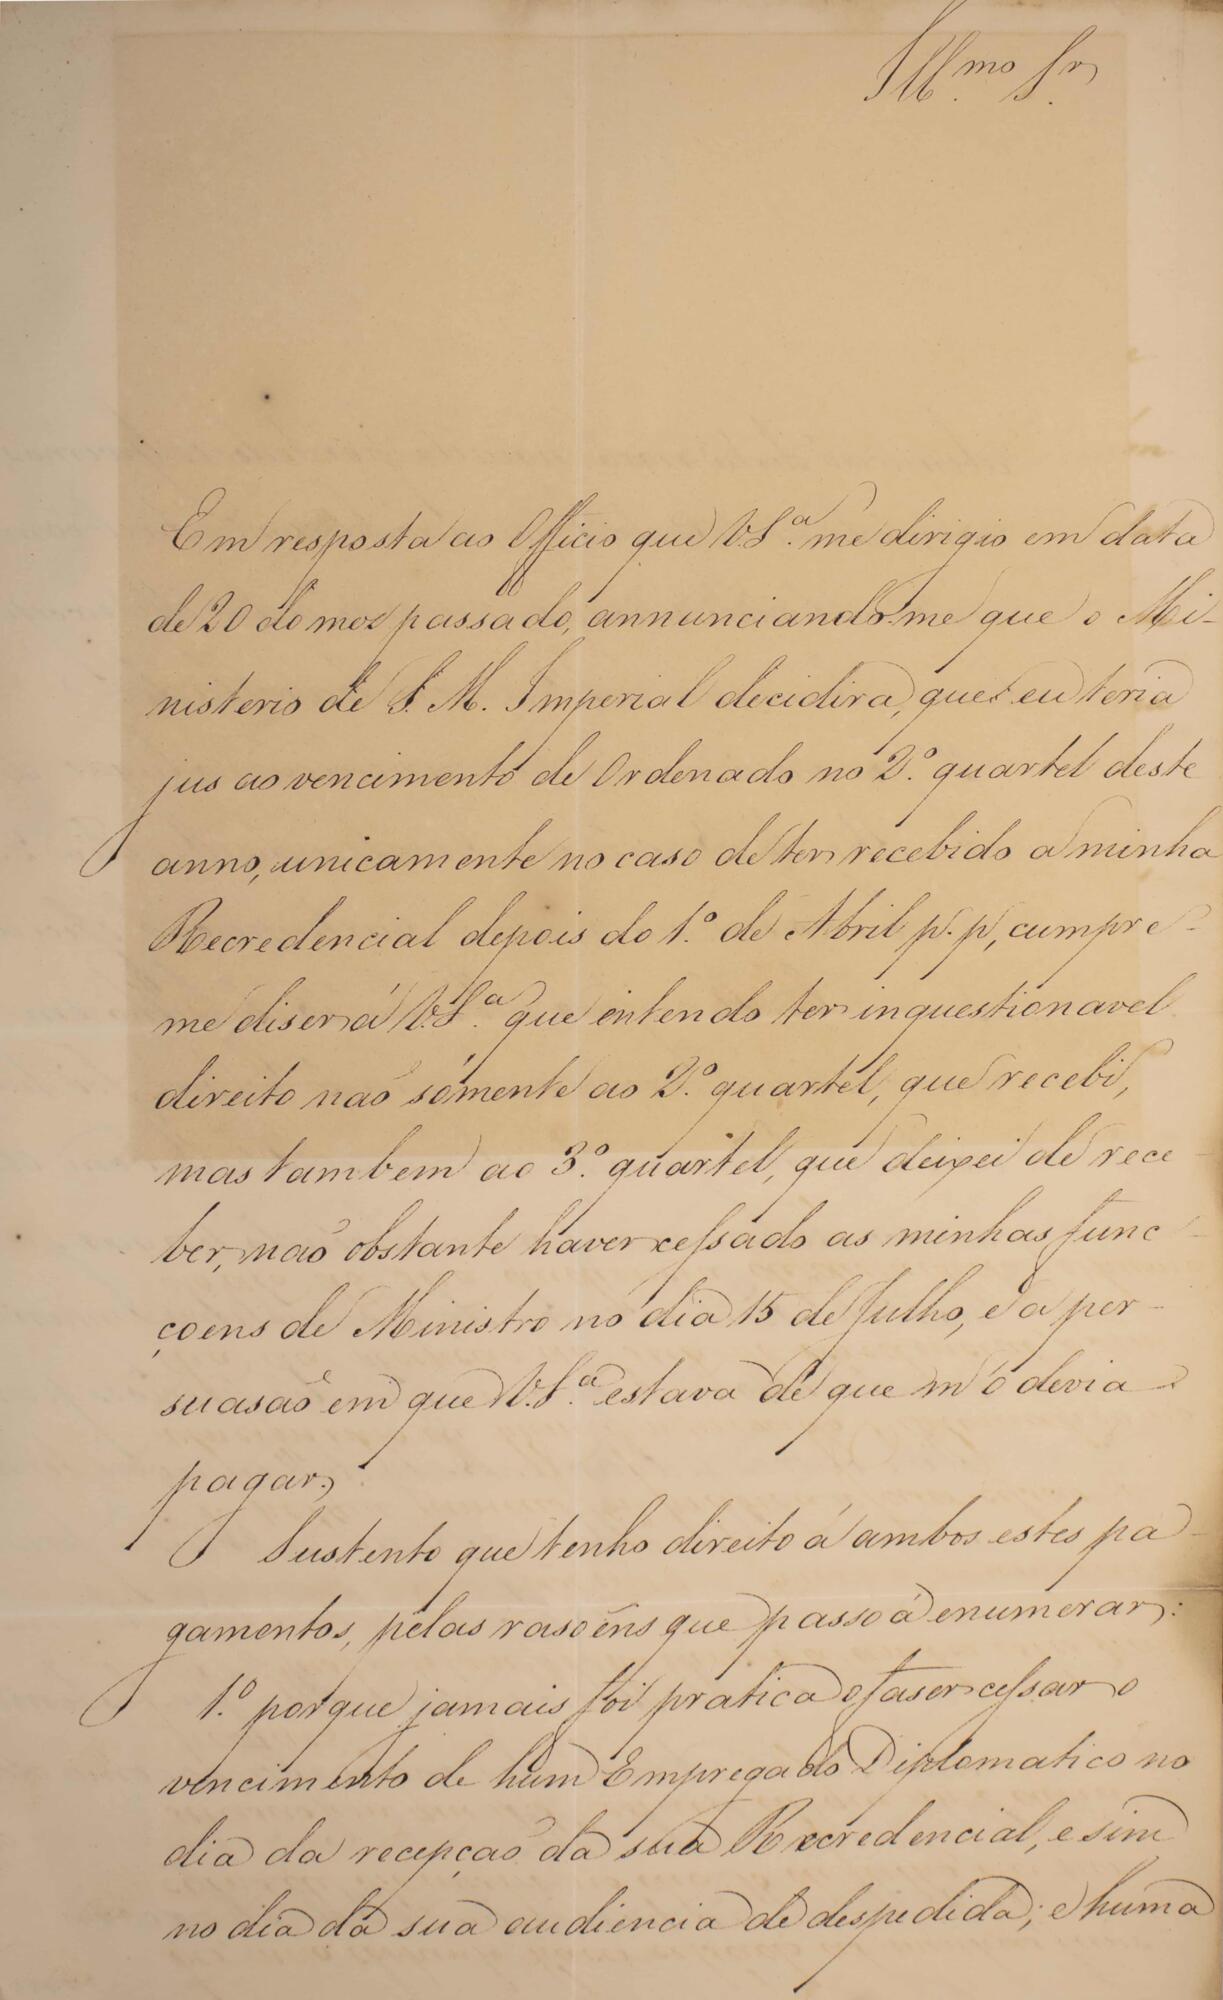 Ill.mo Sr.
Em resposta ao Officio que V.S.a me dirigio em data
de 20 do mez passado, annunciando-me que o Mi-
nisterio de S. M. Imperial decidira, que eu teria
jus ao vencimento de Ordenado no 2.º quartel deste
anno, unicamente no caso de ter recebido a minha
Recredencial depois do 1.º de Abril p.p, cumpre-
me diser á V.S.a que entendo ter inquestionavel
direito naõ sómente ao 2.º quartel, que recebi,
mas tambem ao 3.º quartel, que deixei de rece-
ber, naõ obstante haver cessado as minhas func-
çoens de Ministro no dia 15 de Julho, e a per-
suasaõ em que V.S.a estava de que m'o devia
pagar.
Sustento que tenho direito á ambos estes pa-
gamentos, pelas rasoens que passo á enumerar:
1.º porque jamais foi pratica o faser cessar o
vencimento de hum Empregado Diplomatico no
dia da recepçaõ da sua Recredencial, e sim
no dia da sua audiencia de despedida; e huma